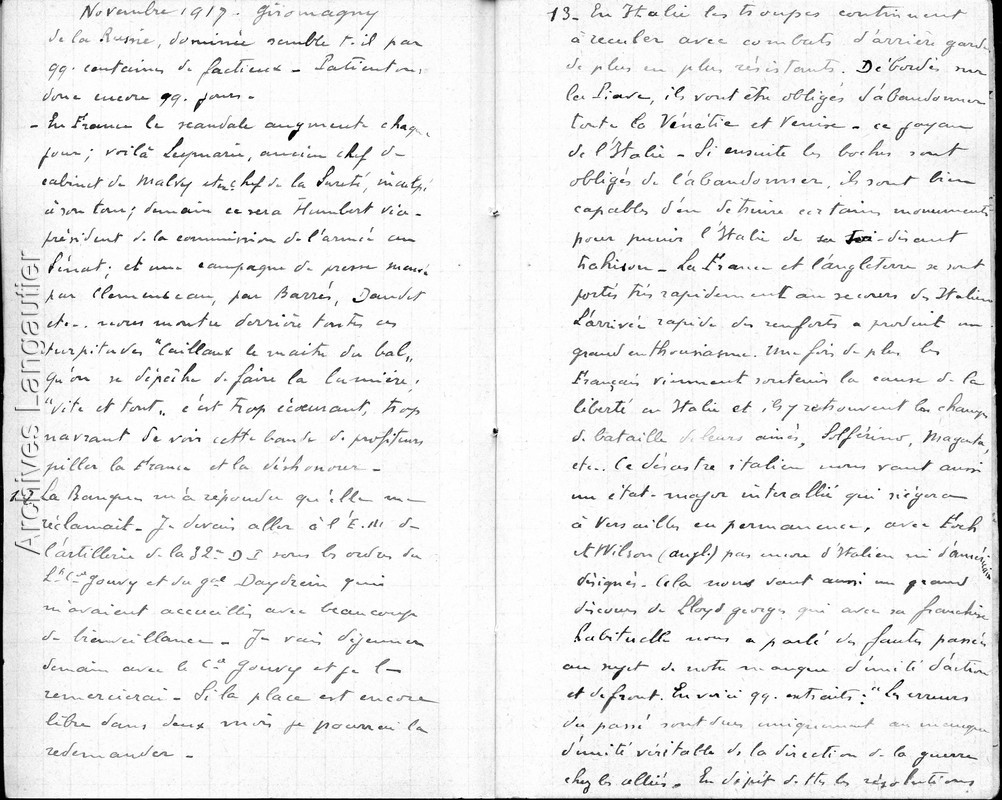 Novembre 1917. Giromagny
de la Russie, dominée semble t-il par
qq. centaines de factieux - Patientons
donc encore qq. jours -
- En France le scandale augmente chaque
jour ; voilà Leymarie, ancien chef de
cabinet de Malvy et chef de la Sureté, inculpé
à son tour ; demain ce sera Humbert vice-
président de la commission de l'armée au
Sénat ; et une campagne de presse menée
par Clemenceau, par Barrès, Daudet
etc.. nous montre derrière toutes ces
turpitudes "Caillaux le maitre du bal„
qu'on se dépêche de faire la lumière,
"vite et tout„ c'est trop écœurant, trop
navrant de voir cette bande de profiteurs
piller la France et la déshonorer -
La Banque m'a répondu qu'elle me
réclamait - Je devais aller à l'E.M de
l'artillerie de la 32e D I sous les ordres du
Lt Cel Gouvy et du gal Daydrein qui
m'avaient accueillis avec beaucoup
de bienveillance - Je vais déjeuner
demain avec le Cel Gouvy et je le
remercierai - Si la place est encore
libre dans deux mois je pourrai la
redemander -
13 - En Italie les troupes continuent
à reculer avec combats d'arrière garde
de plus en plus résistants. Débordés sur
la Piave, ils vont être obligés d'abandonner
toute la Vénétie et Venise - ce joyau
de l'Italie - Si ensuite les boches sont
obligés de l'abandonner, ils sont bien
capables d'en detruire certains monuments
pour punir l'Italie de sa soi-disant
trahison - La France et l'angleterre se sont
portés très rapidement au secours des Italiens
L'arrivée rapide des renforts a produit un
grand enthousiasme. Une fois de plus les
Français viennent soutenir la cause de la
liberté en Italie et ils y retrouvent les champs
de bataille de leurs ainés, Solférino, Magenta,
etc.. Ce désastre italien nous vaut aussi
un état-major interallié qui siégera
à Versailles en permanence, avec Foch
et Wilson (angl.) pas encore d'Italien ni d'américain
désignés - Cela nous vaut aussi un grand
discours de Lloyd georges qui avec sa franchise
habituelle nous a parlé des fautes passées
au sujet de notre manque d'unité d'action
et de front. En voici qq. extraits : "Les erreurs
du passé sont dues uniquement au manque
d'unité véritable de la direction de la guerre
chez les alliés. En dépit de ttes les résolutions
Archives Langautier